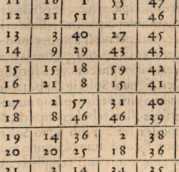 11 10 1 33 47
12 21 51 11 46
13 3 40 27 45
14 9 29 43 43
15 15 18 59 42
16 21 8 15 41
17 2 57 31 40
18 8 46 46 39
19 14 36 2 38
20 20 25 18 36
21 2 14 34 35